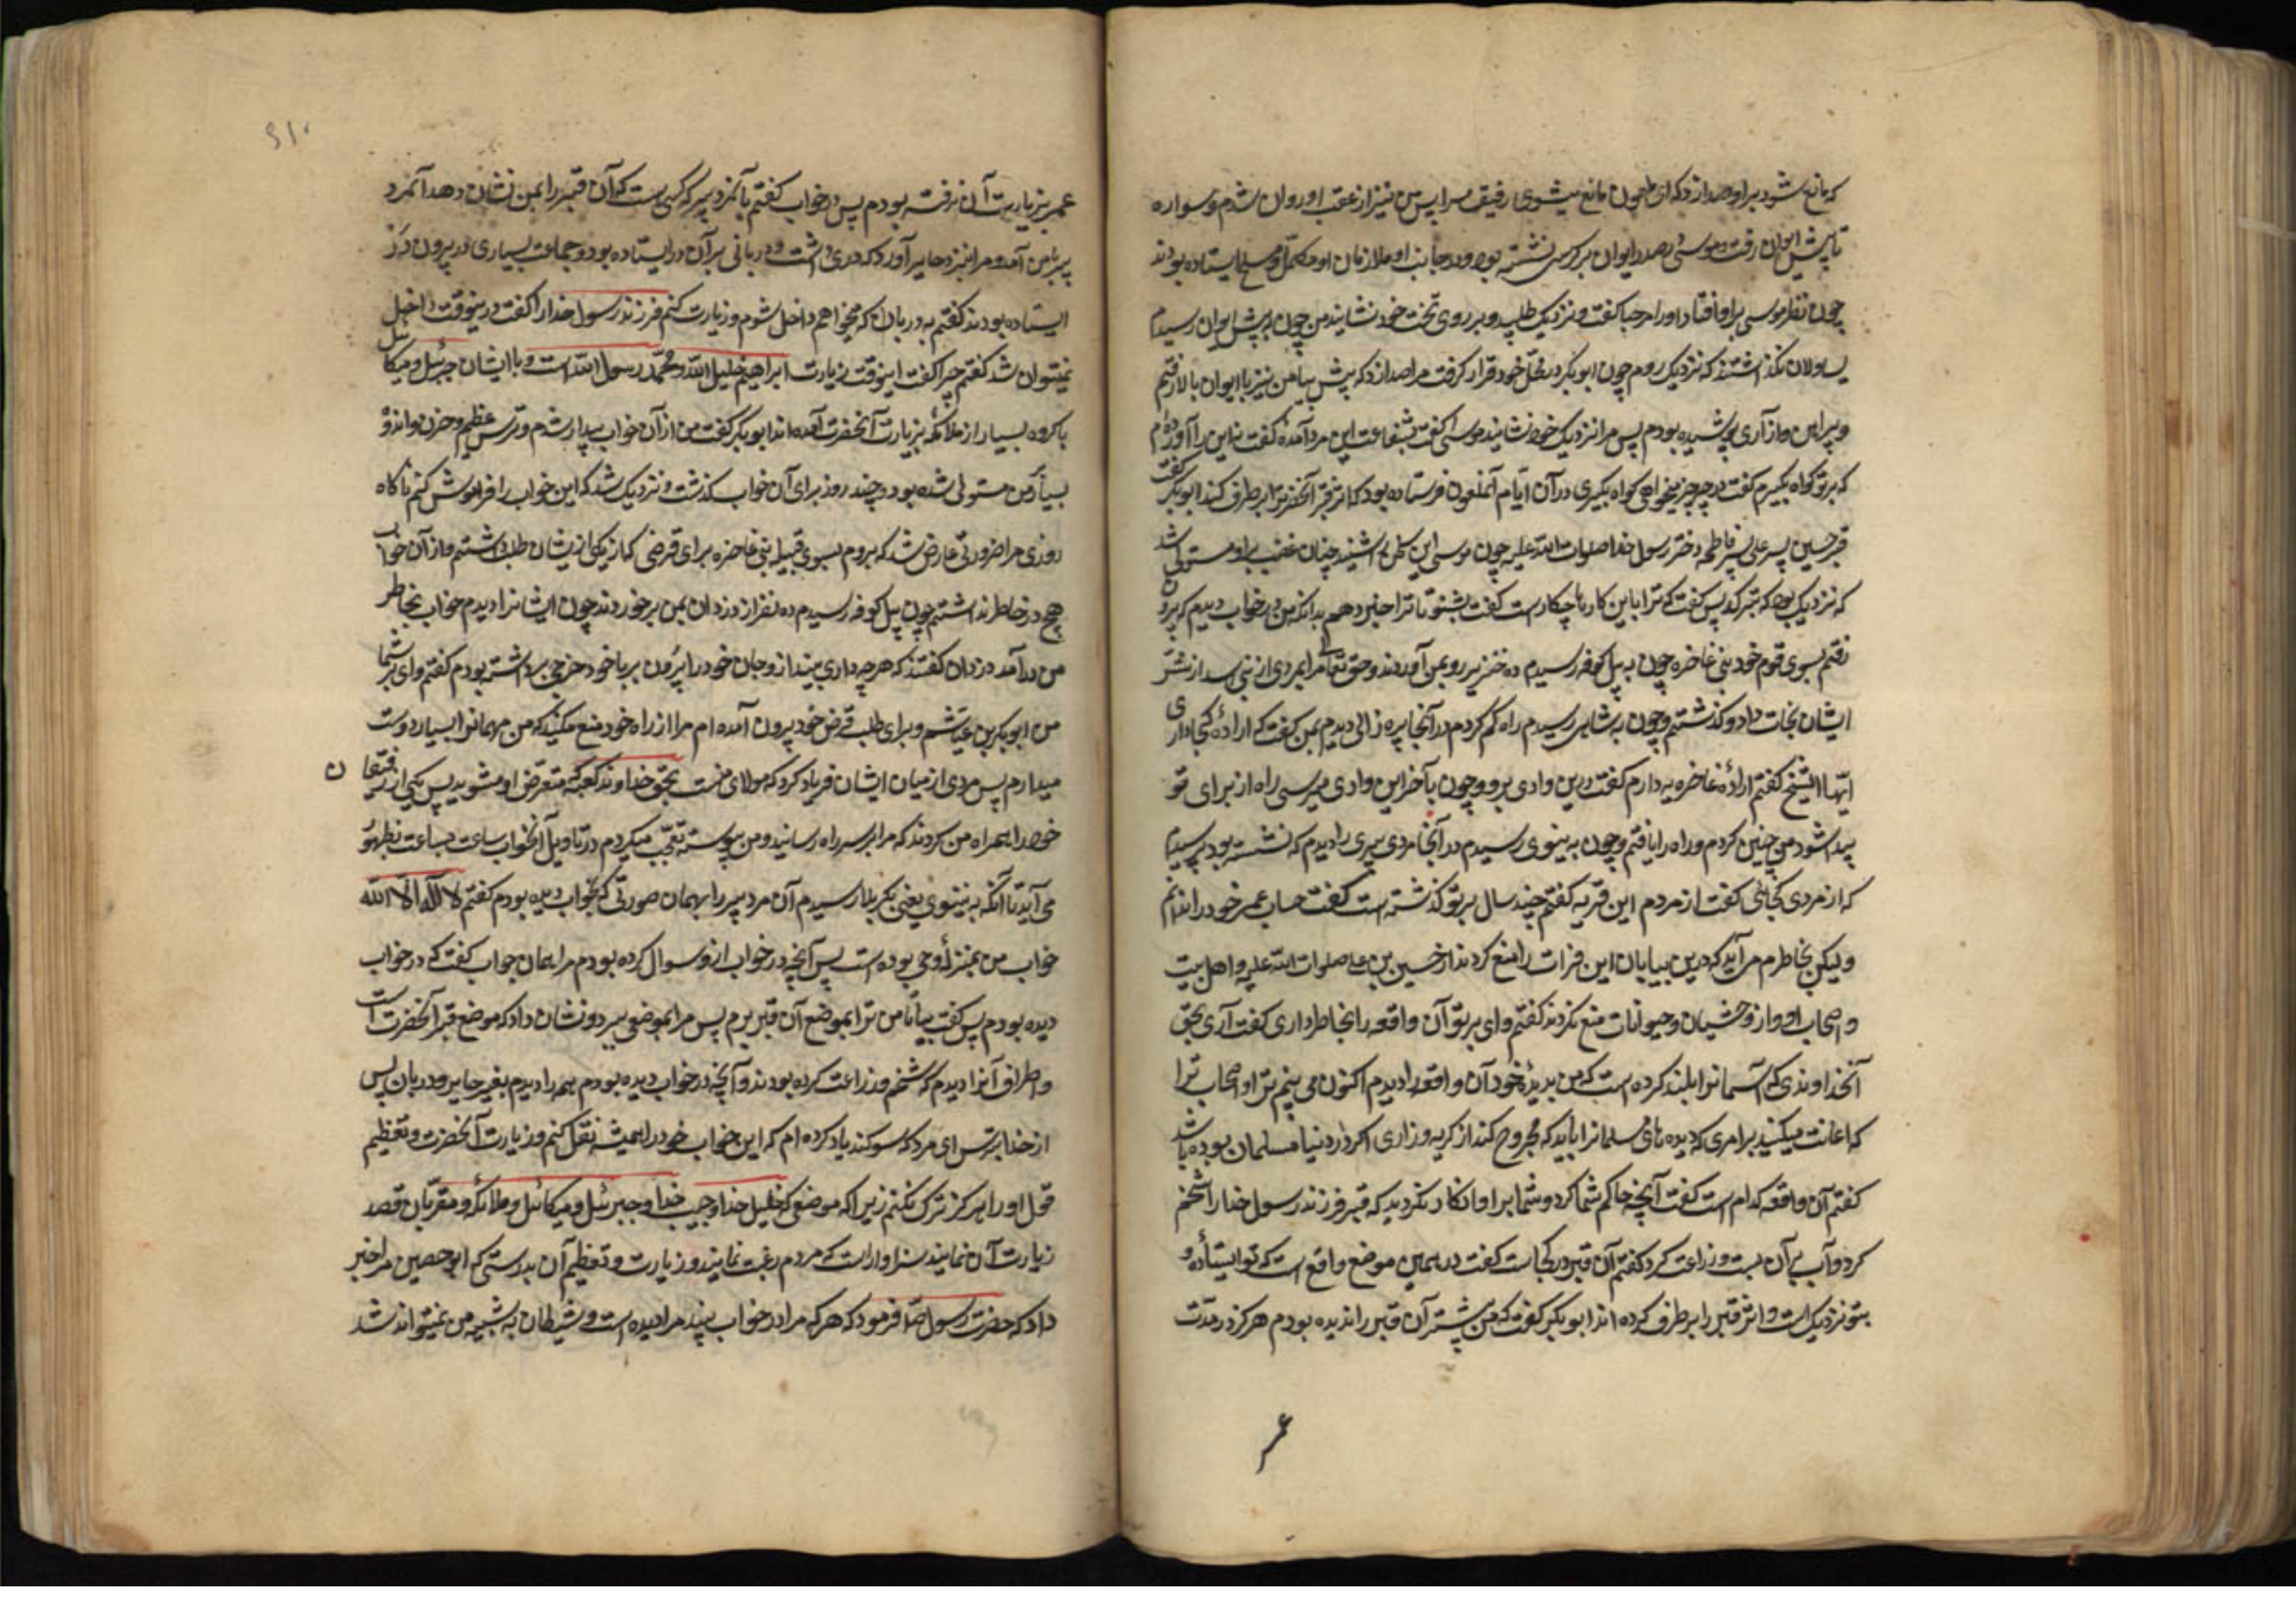 که مانع شود بر او صدا زد که ای ملعون مانع میشوی رفیق مرا پس من نیز از عقب او روان شدم و سواره
تا پیش ایوان رفت و موسی در صدر ایوان بر کرسی نشسته بود و در جانب او ملازمان او مکمل و مسلح ایستاده بودند
چون نظر موسی بر او افتاد او را مرحبا گفت و نزدیک طلبید و بر روی تخت خود نشانید من چون به پیش ایوان رسیدم
یساولان نگذاشتند که نزدیک روم چون ابوبکر در محل خود قرار گرفت مرا صدا زد که پیش بیا من نیز با ایوان بالا رفتم
و پیراهن و ازاری پوشیده بودم پس مرا نزدیک خود نشانید موسی گفت بشفاعت این مرد آمدهٔ گفت نه این را آورده‌ام
که بر تو گواه بگیرم گفت در چه چیز میخواهی گواه بگیری در آن ایام آن ملعون فرستاده بود که اثر قبر آنحضرترا برطرف کند ابوبکر گفت
قبر حسین پسر علی پسر فاطمه دختر رسول خدا صلوات الله علیه چون موسی این کلمه را شنید چنان غضب بر او مستولی شد
که نزدیک بود که بترکد پس گفت که ترا باین کارها چکارست گفت بشنو تا ترا خبر دهم بدانکه من در خواب دیدم که برون
رفتم بسوی قوم خود بنی غاضره چون به پل کوفه رسیدم ده خنزیر رو بمن آوردند و حق تعالی مرا بمردی از بنی اسد از شر
ایشان نجات داد و گذشتم و چون به شاهی رسیدم راه گم کردم در آنجا پیره زالی دیدم بمن گفت که ارادهٔ کجا داری
ایها الشیخ گفتم ارادهٔ غاضریه دارم گفت درین وادی برو و چون بآخر این وادی میرسی راه از برای تو
پیدا شود من چنین کردم و راه را یافتم و چون به نینوی رسیدم در آنجا مرد پیری را دیدم که نشسته بود پرسیدم
که از مردم کجائی گفت از مردم این قریه گفتم چند سال بر تو گذشته است گفت حساب عمر خود را ندانم
ولیکن بخاطرم می آید که درین بیابان این فرات را منع کردند از حسین بن علی صلوات الله علیه و اهل بیت
و اصحاب او و از وحشیان و حیوانات منع نکردند گفتم وای بر تو آن واقعه را بخاطر داری گفت آری بحق
آنخداوندی که آسمانرا بلند کرده است که من بدیدهٔ خود آن واقعه را دیدم اکنون می بینم ترا و اصحاب ترا
که اعانت میکنید بر امری که دیده های مسلمانرا باید که مجروح کند از گریه و زاری اگر در دنیا مسلمان بوده باشد
گفتم آن واقعه کدام است گفت آنچه حاکم شما کرد و شما بر او انکار نکردید که قبر فرزند رسول خدا را شخم
کرد و آب بر آن بست و زراعت کرد گفتم آن قبر در کجاست گفت در همین موضع واقع است که تو ایستادهٔ و
بتو نزدیک است و اثر قبر را برطرف کرده اند ابوبکر گفت که من پیشتر آن قبر را ندیده بودم هرگز در مدت
عمر
عمر بزیارت آن نرفته بودم پس در خواب گفتم بآنمرد پیر که کسی هست که آن قبر را بمن نشان دهد آنمرد
پیر با من آمد و مرا بنزد حایر آورد که دری داشت و دربانی بر آن در ایستاده بود و جماعت بسیاری در بیرون در
ایستاده بودند گفتم به دربان که میخواهم داخل شوم و زیارت کنم فرزند رسول خدا را گفت درینوقت داخل
نمیتوان شد گفتم چرا گفت اینوقت زیارت ابراهیم خلیل الله و محمد رسول الله است و با ایشان جبرئیل و میکائیل
با گروه بسیار از ملائکه بزیارت آنحضرت آمده اند ابوبکر گفت من از آن خواب بیدار شدم و ترس عظیم و حزن و اندوه
بسیار بمن مستولی شده بود و چند روز برای آن خواب گذشت و نزدیک شد که این خواب را فراموش کنم ناگاه
روزی مرا ضرورتی عارض شد که بروم بسوی قبیله بنی غاضره برای قرضی که از یکی ازیشان طلب داشتم و از آن خواب
هیچ در خاطر نداشتم چون پل کوفه رسیدم ده نفر از دزدان بمن برخوردند چون ایشانرا دیدم خواب بخاطر
من درآمد دزدان گفتند که هر چه داری بینداز و جان خود را بیرون بر با خود خرجی برداشته بودم گفتم وای بر شما
من ابوبکر بن عیاشم و برای طلب قرض خود بیرون آمده ام مرا از راه خود منع مکنید که من مهمانرا بسیار دوست
میدارم پس مردی از میان ایشان فریاد کرد که مولای منست بحق خداوند کعبه که متعرض او مشوید پس یکی از رفیقان
خود را همراه من کردند که مرا بر سر راه رسانید و من پیوسته تعجب میکردم در تاویل آنخواب ساعت بساعت بظهور
می آید تا آنکه به نینوی یعنی بکربلا رسیدم آن مرد پیر را بهمان صورتی که بخواب دیده بودم گفتم لا اله الا الله
خواب من بمنزلهٔ وحی بوده است پس آنچه در خواب ازو سوال کرده بودم مرا همان جواب گفت که در خواب
دیده بودم پس گفت بیا تا من ترا بموضع آن قبر برم پس مرا بموضعی برد و نشان داد که موضع قبر آنحضرت است
و اطراف آنرا دیدم که شخم و زراعت کرده بودند و آنچه در خواب دیده بودم همه را دیدم بغیر حایر و دربان پس
از خدا بترس ای مرد که سوگند یاد کرده ام که این خواب خود را همیشه نقل کنم و زیارت آنحضرت و تعظیم
قول او را هرگز ترک نکنم زیرا که موضعی که خلیل خدا و حبیب خدا و جبرئیل و میکائیل و ملائکه و مقربان قصد
زیارت آن نمایند سزاوار است که مردم رغبت نمایند و زیارت و تعظیم آن بدرستی که ابوحصین مرا خبر
داد که حضرت رسول ص فرمود که هر که مرا در خواب بیند مرا دیده است و شیطان به شبیه من نمیتواند شد